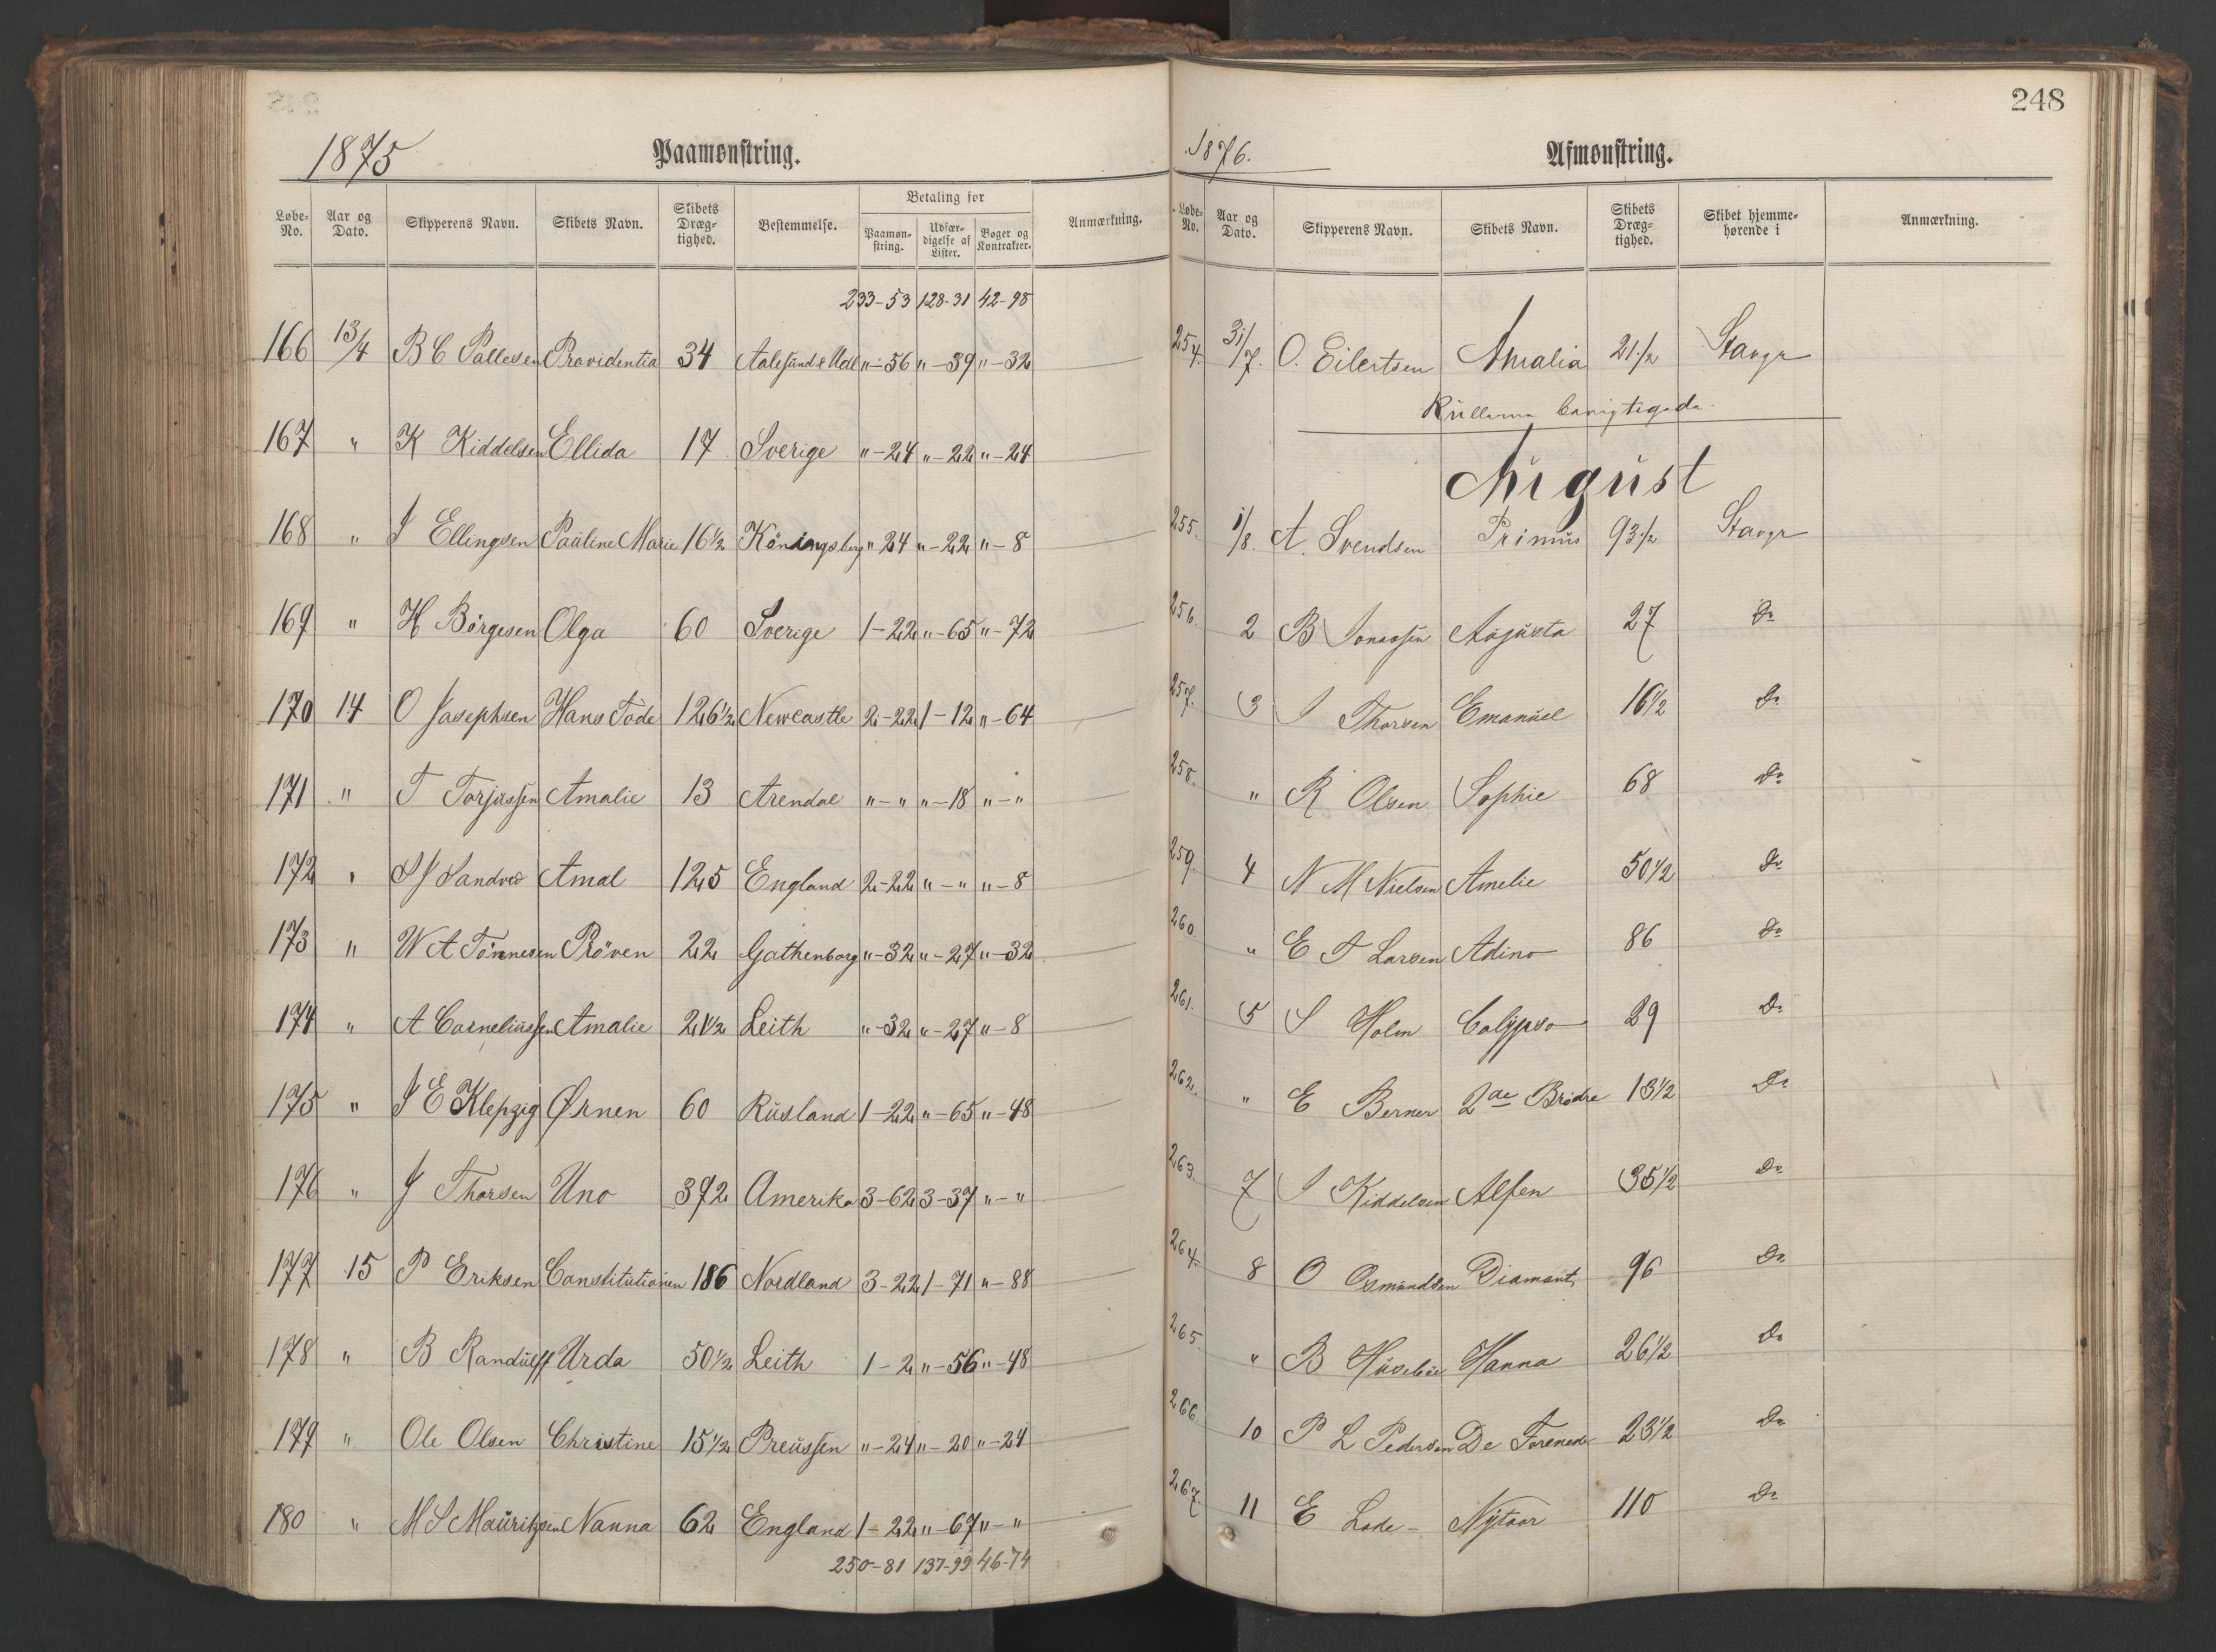 1875 Paamønstring.
Løbe-No. Aar og Dato. Skipperens Navn. Skibets Navn. Skibets Dræg-tighed. Bestemmelse. Betaling for Paamøn-string. Udfær-digelse af Lister. Bøger og Kontrakter. Anmærkning.
233-53 128-31 42-98
166 13/4 B C Pallesen Providentia 34 Aalesund & Udl "-56 "-39 "-32
167 " K Kiddelsen Ellida 17 Sverige "-24 "-22 "-24
168 " J Ellingsen Pauline Marie 16 1/2 Köningsberg "24 "-22 "-8
169 " H Börgesen Olga 60 Sverige 1-22 "-65 "-72
170 14 O Josephsen Hans Tode 126 1/2 Newcastle 2-22 1-12 "-64
171 " T Torjussen Amalie 13 Arendal "-" "-18 "-"
172 " S J Sandved Amal 125 England 2-22 "-" "-8
173 " W A Tönnesen Pröven 22 Gothenborg "-32 "-27 "-32
174 " A Corneliussen Amalie 21 1/2 Leith "-32 "-27 "-8
175 " J E Klepzig Ørnen 60 Rusland 1-22 "-65 "-48
176 " J Thorsen Uno 392 Amerika 3-62 3-37 "-"
177 15 P Eriksen Constitutionen 186 Nordland 3-22 1-71 "-88
178 " B Randulff Urda 50 1/2 Leith 1-2 "-56 "-48
179 " Ole Olsen Christine 15 1/2 Preussen "-24 "-20 "-24
180 " M S Mauritzsen Nanna 62 England 1-22 "-67 "-"
250-81 137-99 46-74
248
1876. Afmønstring.
Løbe-No. Aar og Dato. Skipperens Navn. Skibets Navn. Skibets Dræg-tighed. Skibet hjemme-hørende i Anmærkning.
254. 31/7. O. Eilertsen Amalia 21 1/2 Stavgr
August
255. 1/8. A. Svendsen Primus 93 1/2 Stavgr
256. 2 B Jonassen Augusta 27 Do
257. 3 J Thorsen Emanuel 16 1/2 Do
258. " R Olsen Sophie 68 Do
259. 4 N M Nielsen Amelie 50 1/2 Do
260. " E T Larsen Adino 86 Do
261. 5 S Holm Calypso 29 Do
262. " E Berner 2de Brødre 13 1/2 Do
263. 7 J Kiddelsen Alfen 35 1/2 Do
264. 8 O Osmundsen Diamant 96 Do
265. " B Husebøe Hanna 26 1/2 Do
266. 10 P L Pedersen De Forenede 23 1/2 Do
267. 11 E Lode Nytaar 110 Do